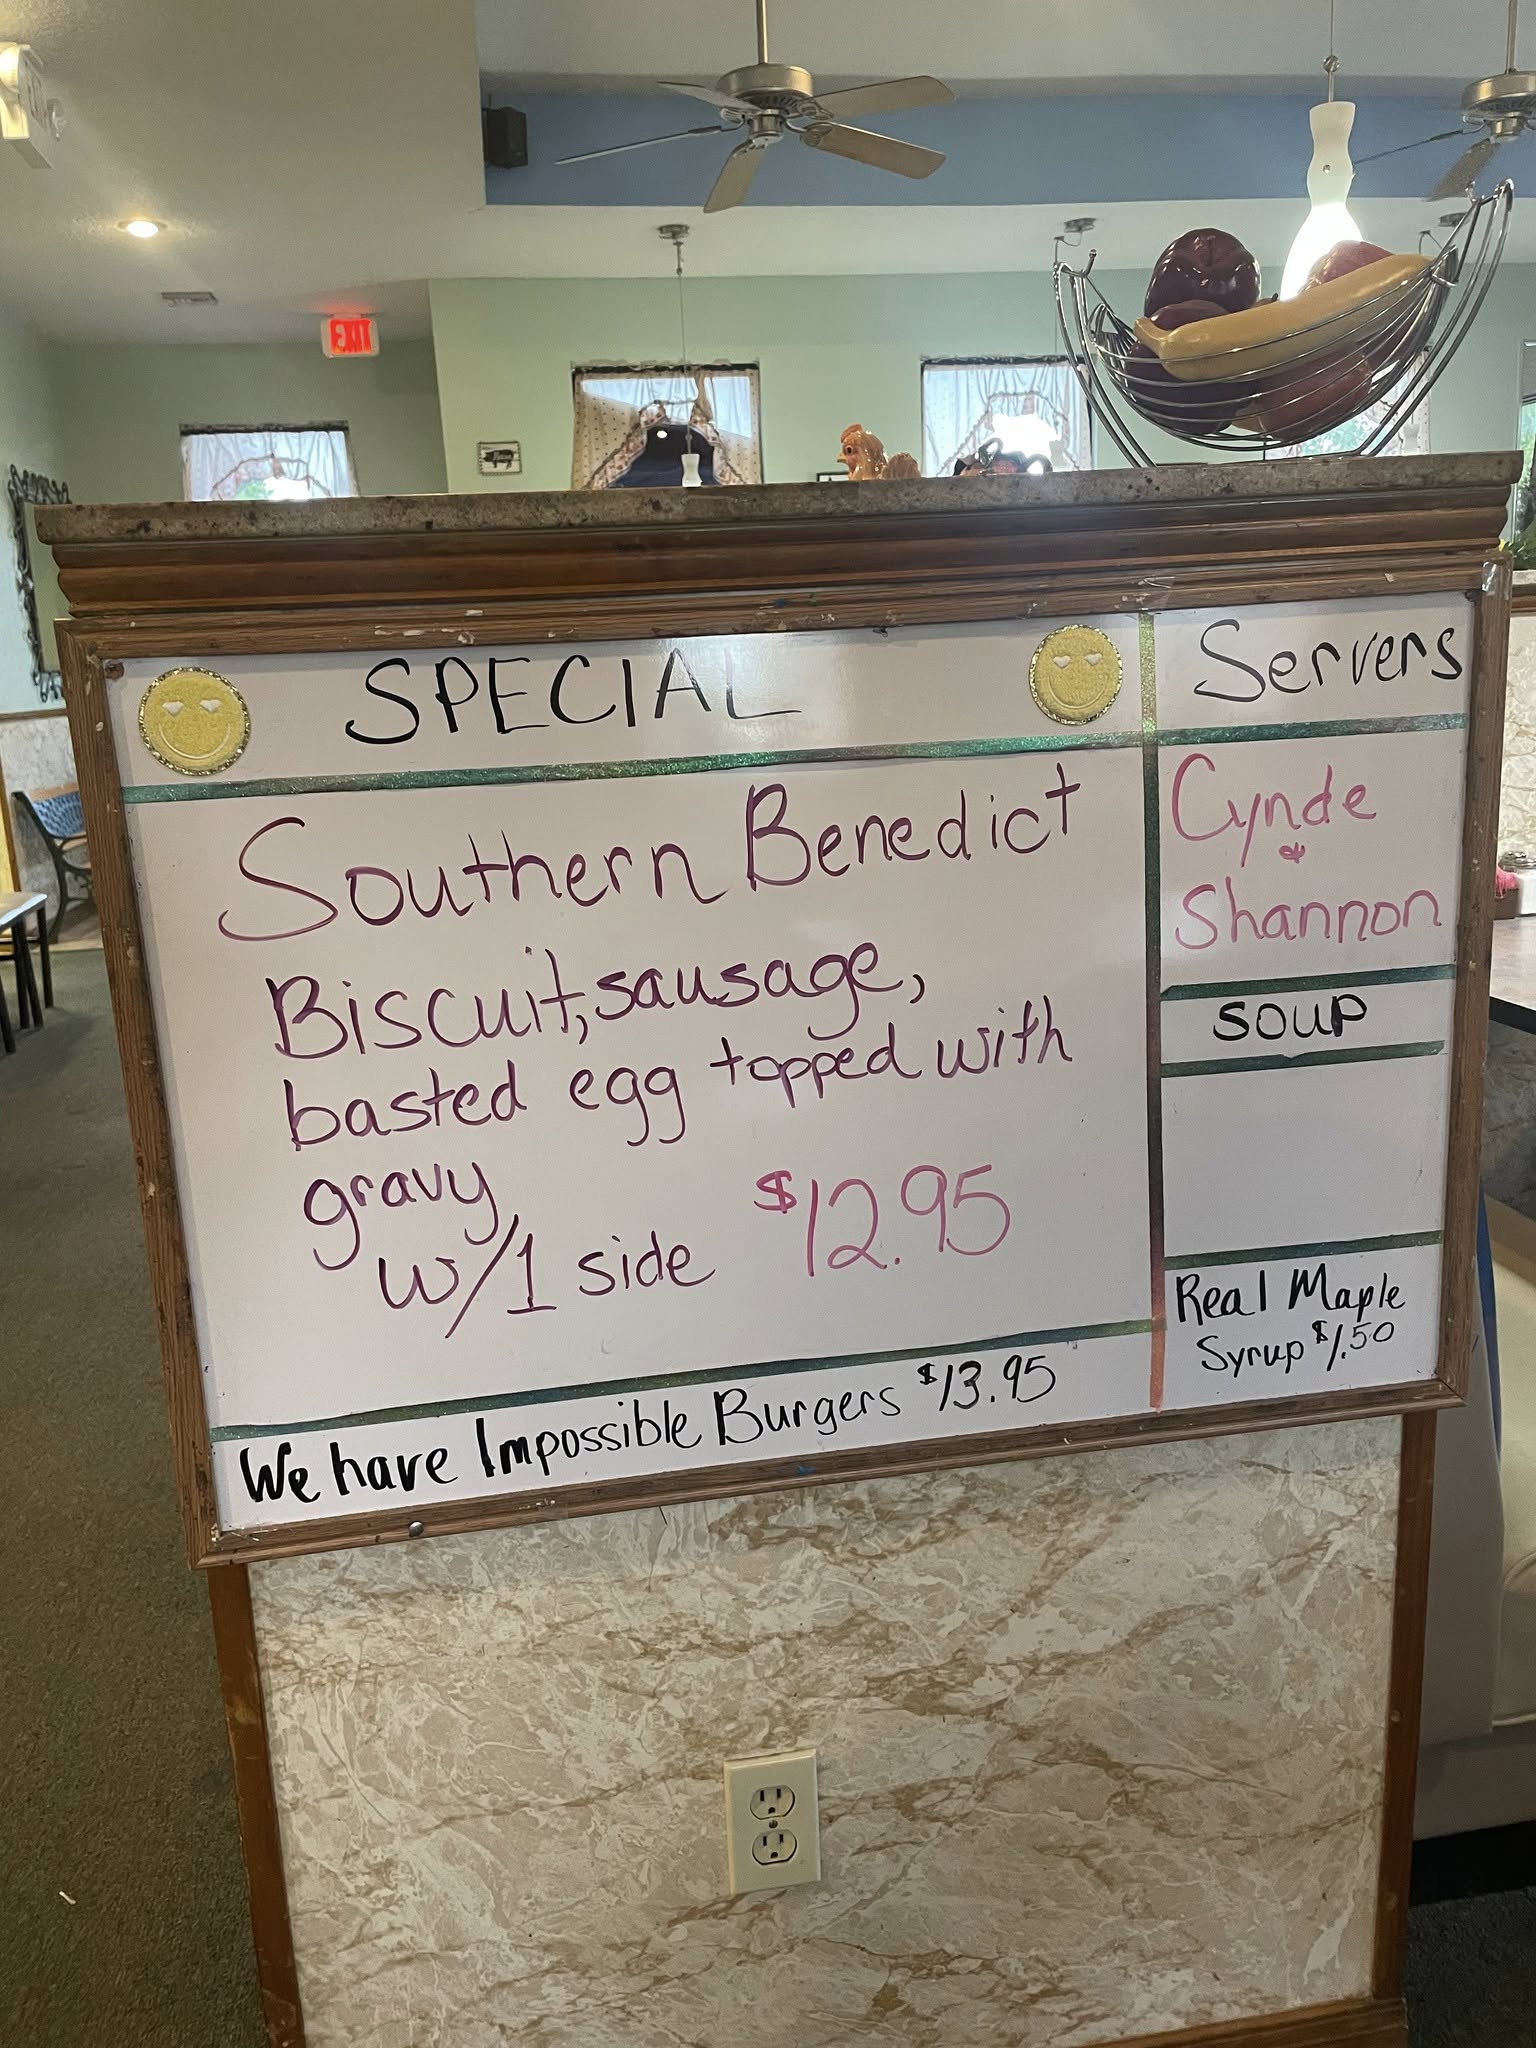 EXIT
SPECIAL
Southern Benedict
Biscuit, sausage,
basted egg topped with
gravy
w/1 side $12.95
We have Impossible Burgers $13.95
Servers
Cynde
&
Shannon
SOUP
Real Maple
Syrup $1.50